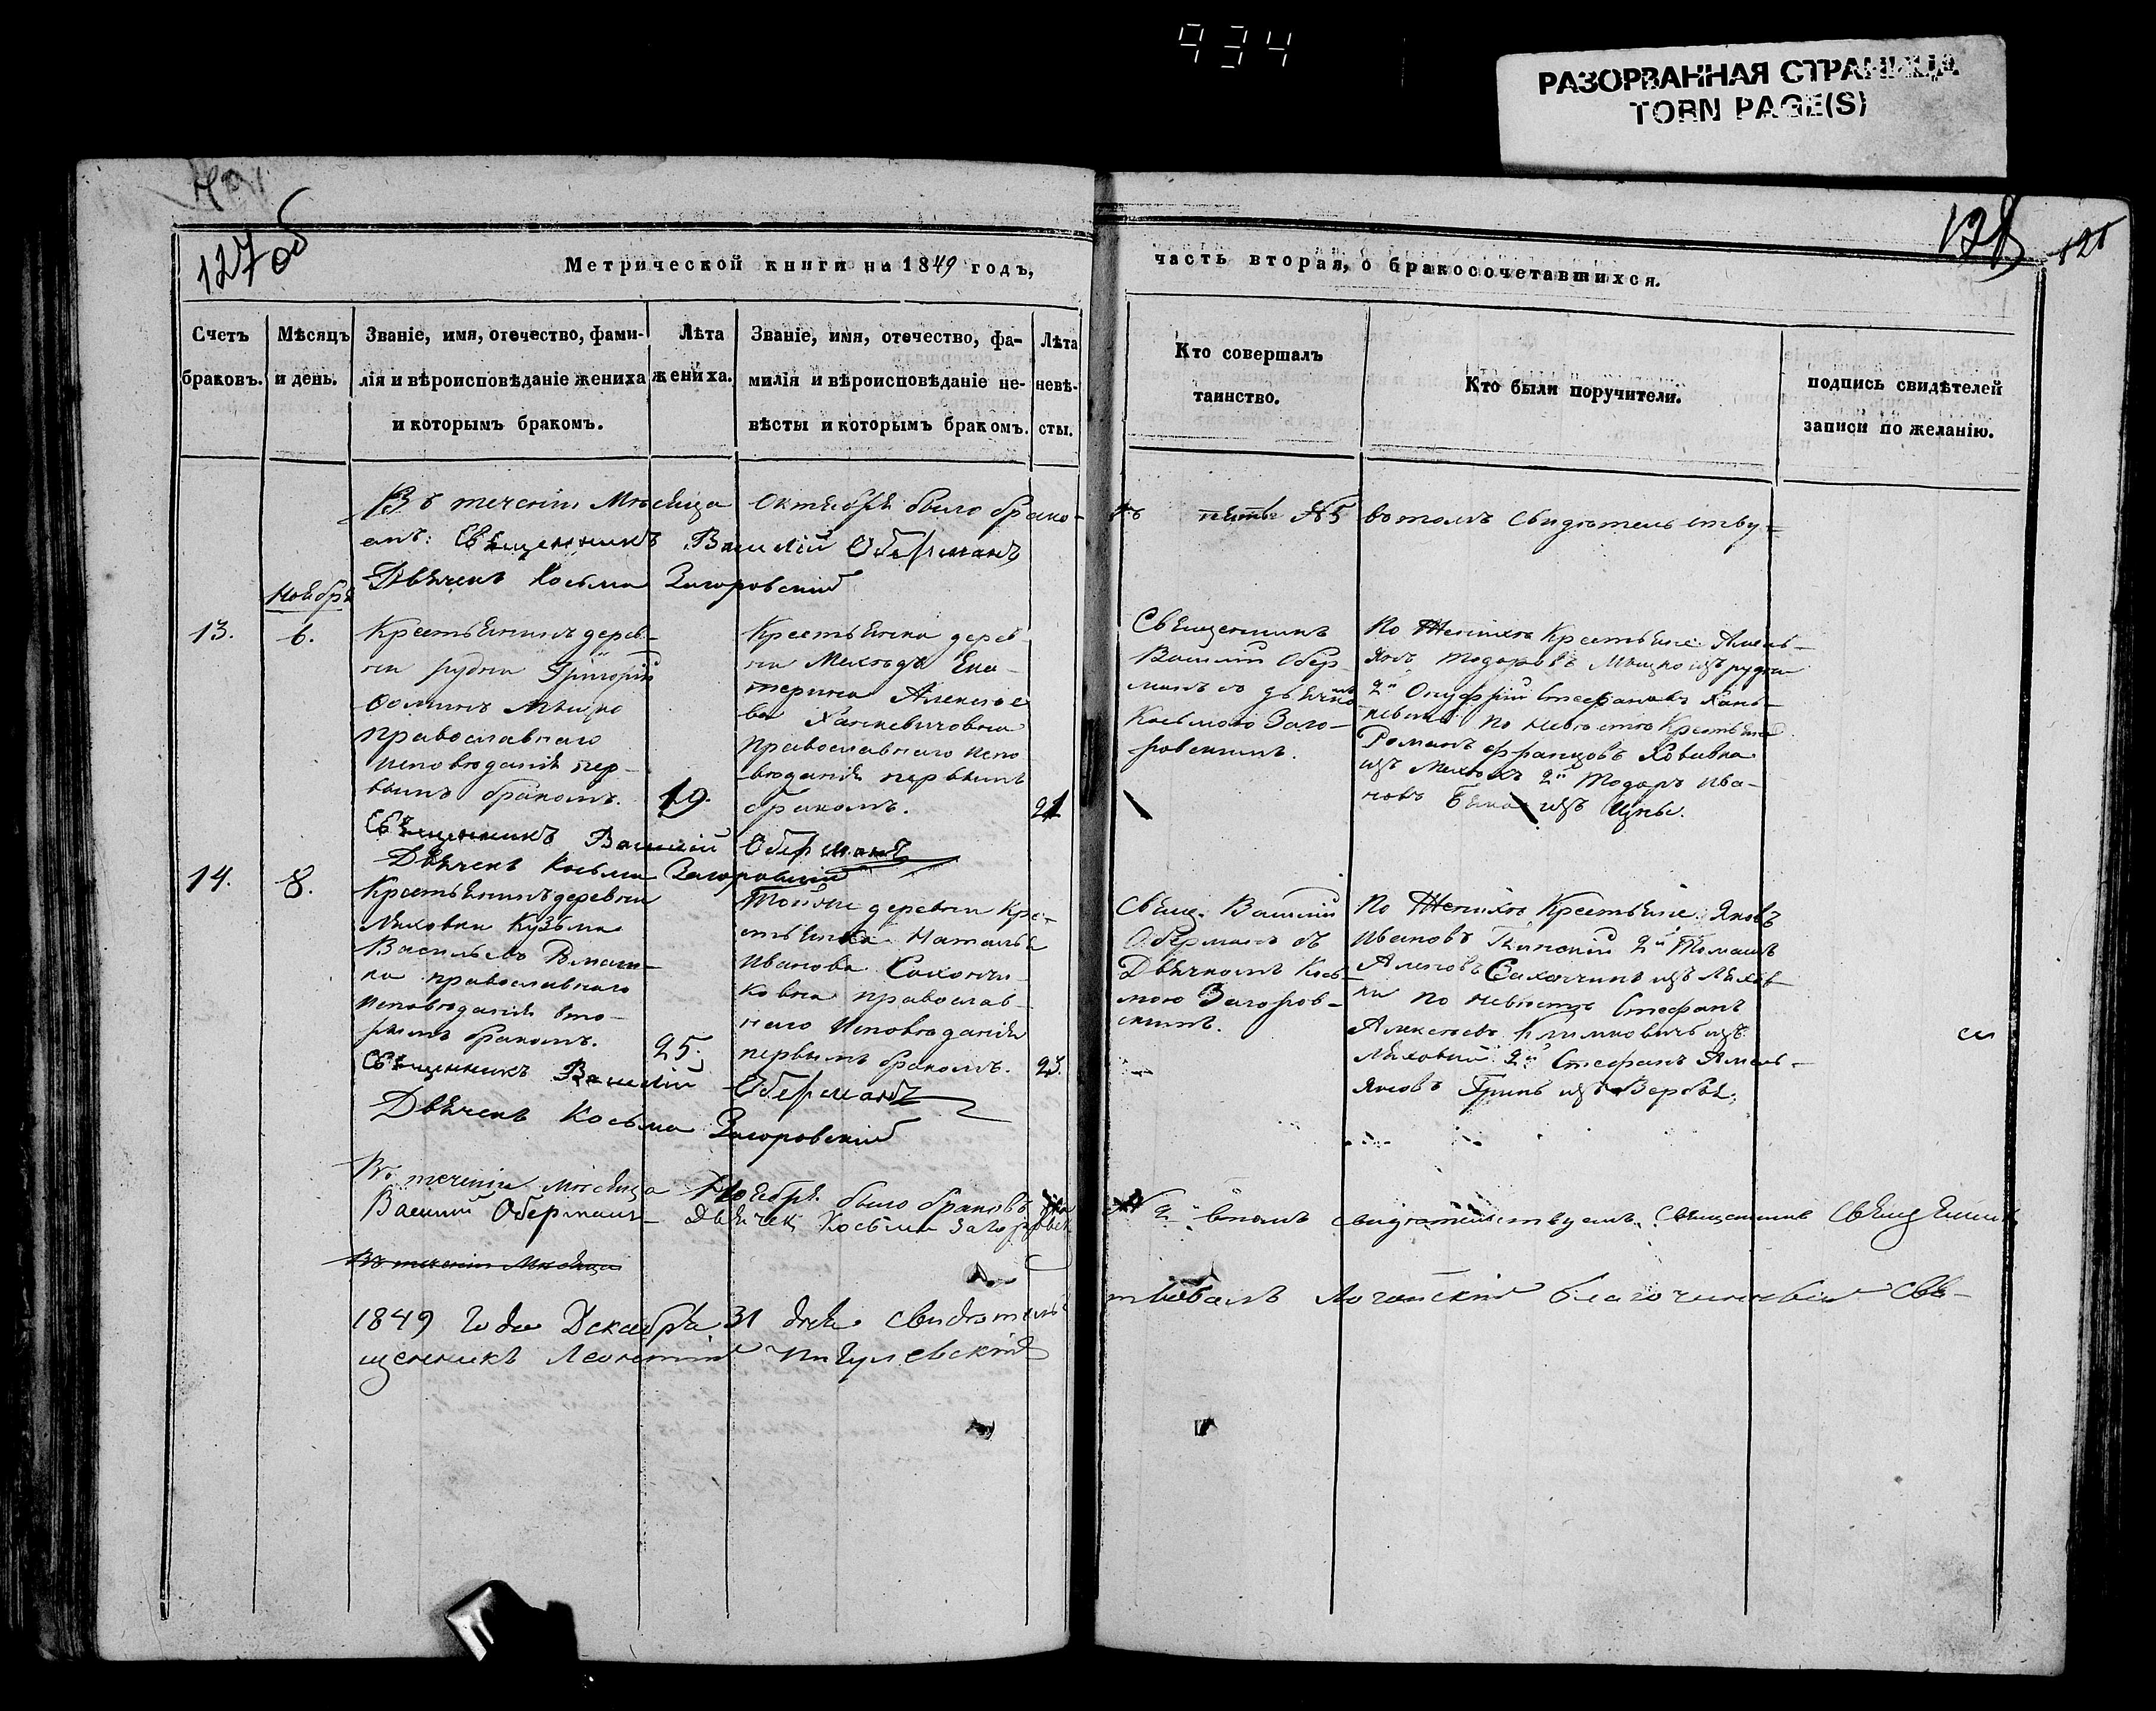 934
РАЗОРВАННАЯ СТРАНИЦА
TORN PAGE(S)
127 об
128
Метрической книги на 1849 годъ,
часть вторая, о бракосочетавшихся.
Счетъ
браковъ.
Мѣсяцъ
и день.
Званіе, имя, отечество, фами-
лія и вѣроисповѣданіе жениха
и которымъ бракомъ.
Лѣта
жениха.
Званіе, имя, отечество, фа-
милія и вѣроисповѣданіе не-
вѣсты и которымъ бракомъ.
Лѣта
невѣ-
сты.
Кто совершалъ
таинство.
Кто были поручители.
подпись свидѣтелей
записи по желанію.
Въ теченіи Мѣсяца Октября было брако-
въ пять №5 въ томъ свидѣтельству=
емъ: Священникъ Василій Оберманъ
Дьячекъ Косьма Загоровскій
Ноября
13.
6.
Крестьянинъ дерев-
ни рудни Григорій
Фоминъ Мышко
православнаго
исповѣданія пер-
вымъ бракомъ.
19.
Крестьянка дерев-
ни Мехѣдъ Ека-
терина Алексѣе
ва Ханкевичовна
православнаго испо
вѣданія первымъ
бракомъ.
21
Священникъ
Василій Обер-
манъ съ дьячко
Косьмою Заго-
ровскимъ.
По Женихѣ Крестьяне Амель-
янъ Тодоровъ Мышко изъ рудни
2й Онуфрій Стефановъ Хань-
кевичь по невѣстѣ Крестьяне
Романъ Францовъ Ховавка
изъ Мехѣдъ 2й Тодоръ Ива-
новъ изъ Цны.
Священникъ Василій Оберманъ
Дьячекъ Косьма Загоровскій
14.
8.
Крестьянинъ деревни
Ляховки Кузьма
Васильевъ
ка православнаго
исповѣданія вто-
рымъ бракомъ.
25.
Тойже деревни Кре-
стьянка Наталья
Иванова Сахончи-
ковна православ-
наго исповѣданія
первымъ бракомъ.
23.
Свящ. Василій
Оберманъ съ
Дьячкомъ Кось-
мою Загоров-
скимъ.
По Женихѣ Крестьяне Яковъ
Ивановъ 2й Томашъ
Сахончикъ изъ Ляхов-
ки по невѣстѣ Стефанъ
Алексѣевъ Климковичь изъ
Ляховки 2й Стефанъ Амель-
яновъ Гринь изъ
Священникъ Василій Оберманъ
Дьячекъ Косьма Загоровскій
Въ теченіи мѣсяца Ноября было браковъ два
№ 2 въ томъ свидѣтельствуемъ. Священникъ
Василій Оберманъ Дьячекъ Косьма Загоровск
Въ теченіи Мѣсяца
1849 года Декабря 31 дня свидѣтель
ствовалъ Логойскій благочинный Свя-
щенникъ Леонтій Пигулевскій